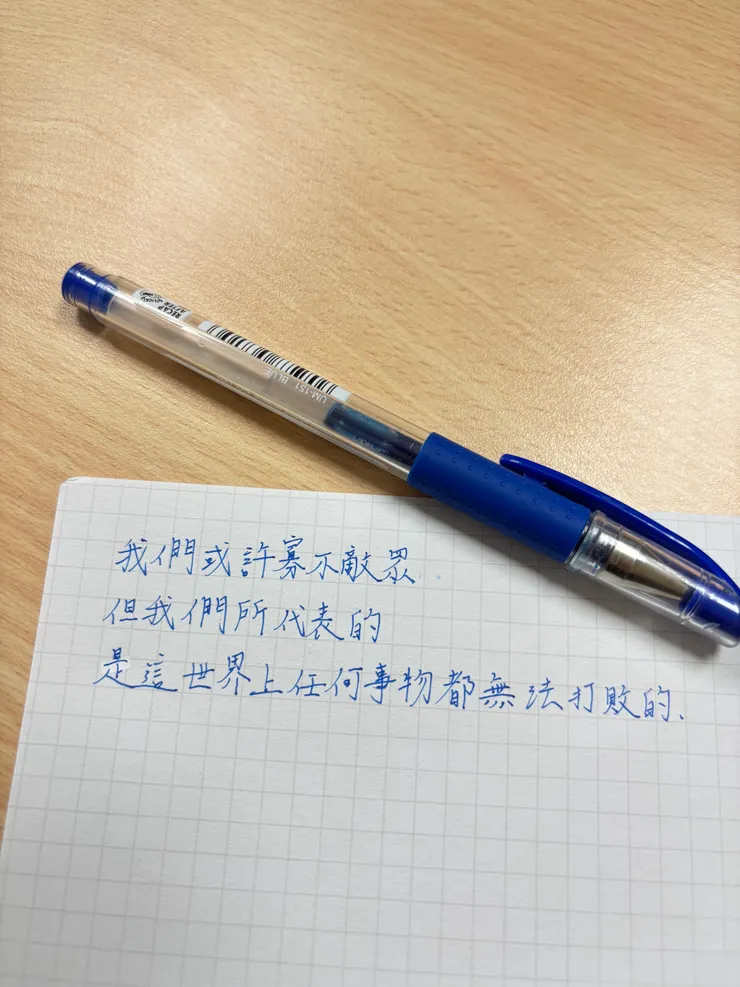 RECAP
AFTER
UM-151 BLUE
我們或許寡不敵眾
但我們所代表的
是這世界上任何事物都無法打敗的、